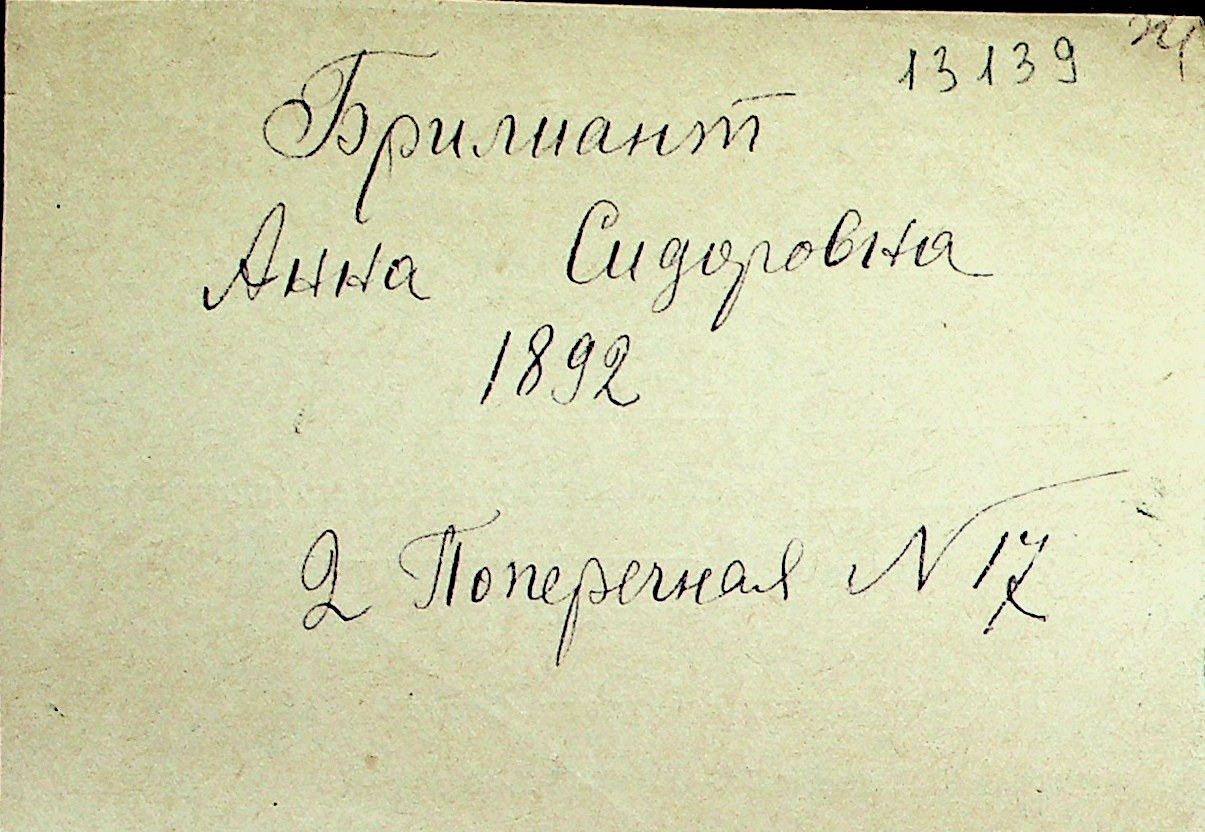 13139
Брилиант
Анна Сидоровна
1892
2 Поперечная N 17